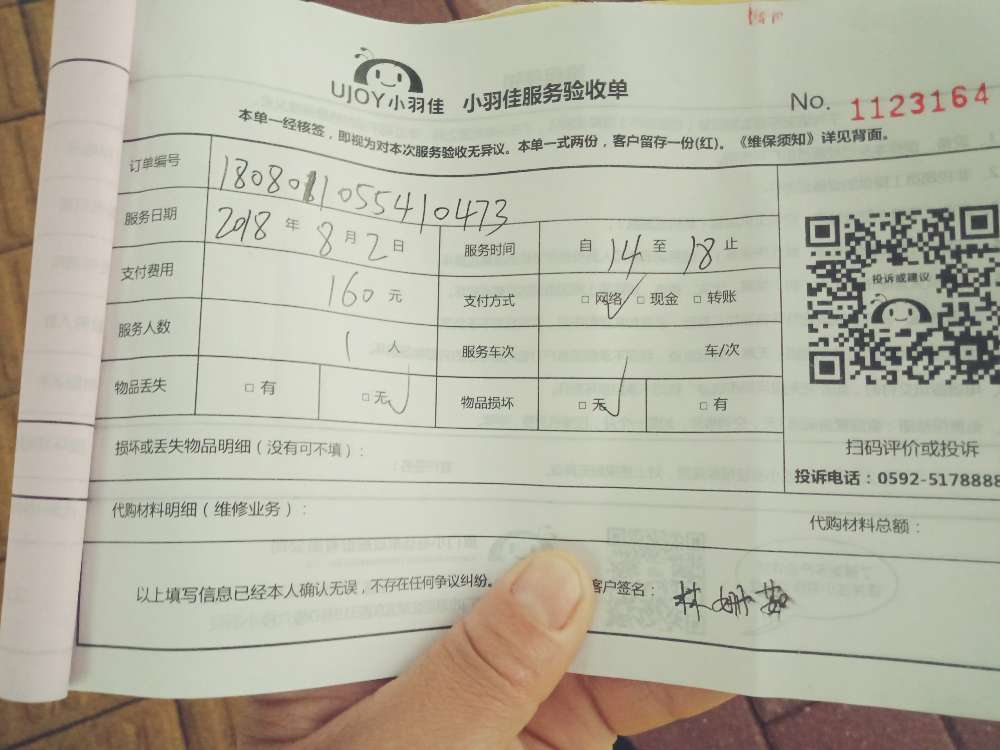 UJOY小羽佳 小羽佳服务验收单
No. 1123164
本单一经核签，即视为对本次服务验收无异议。本单一式两份，客户留存一份(红)。《维保须知》详见背面。
订单编号 180801105541 0473
服务日期 2018 年 8 月 2 日 服务时间 自 14 至 18 止
支付费用 160 元 支付方式 □ 网络 ✓ □ 现金 □ 转账
服务人数 1 人 服务车次 车/次
物品丢失 □ 有 □ 无 ✓ 物品损坏 □ 无 ✓ □ 有
投诉或建议
扫码评价或投诉
投诉电话：0592-5178888
损坏或丢失物品明细（没有可不填）：
代购材料明细（维修业务）：
代购材料总额：
以上填写信息已经本人确认无误，不存在任何争议纠纷。 客户签名： 林姗茹